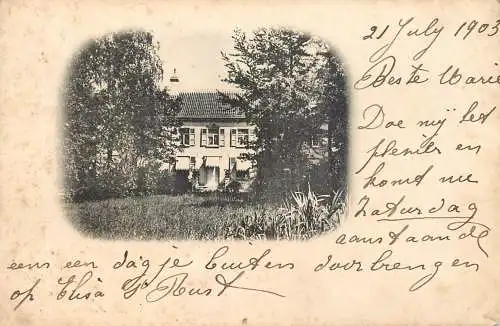 21 July 1903
Beste Marie
Doe mij het
plezier en
komt nu
Zaturdag
aanstaande
eens een dagje buiten doorbrengen
op Elisa's Rust